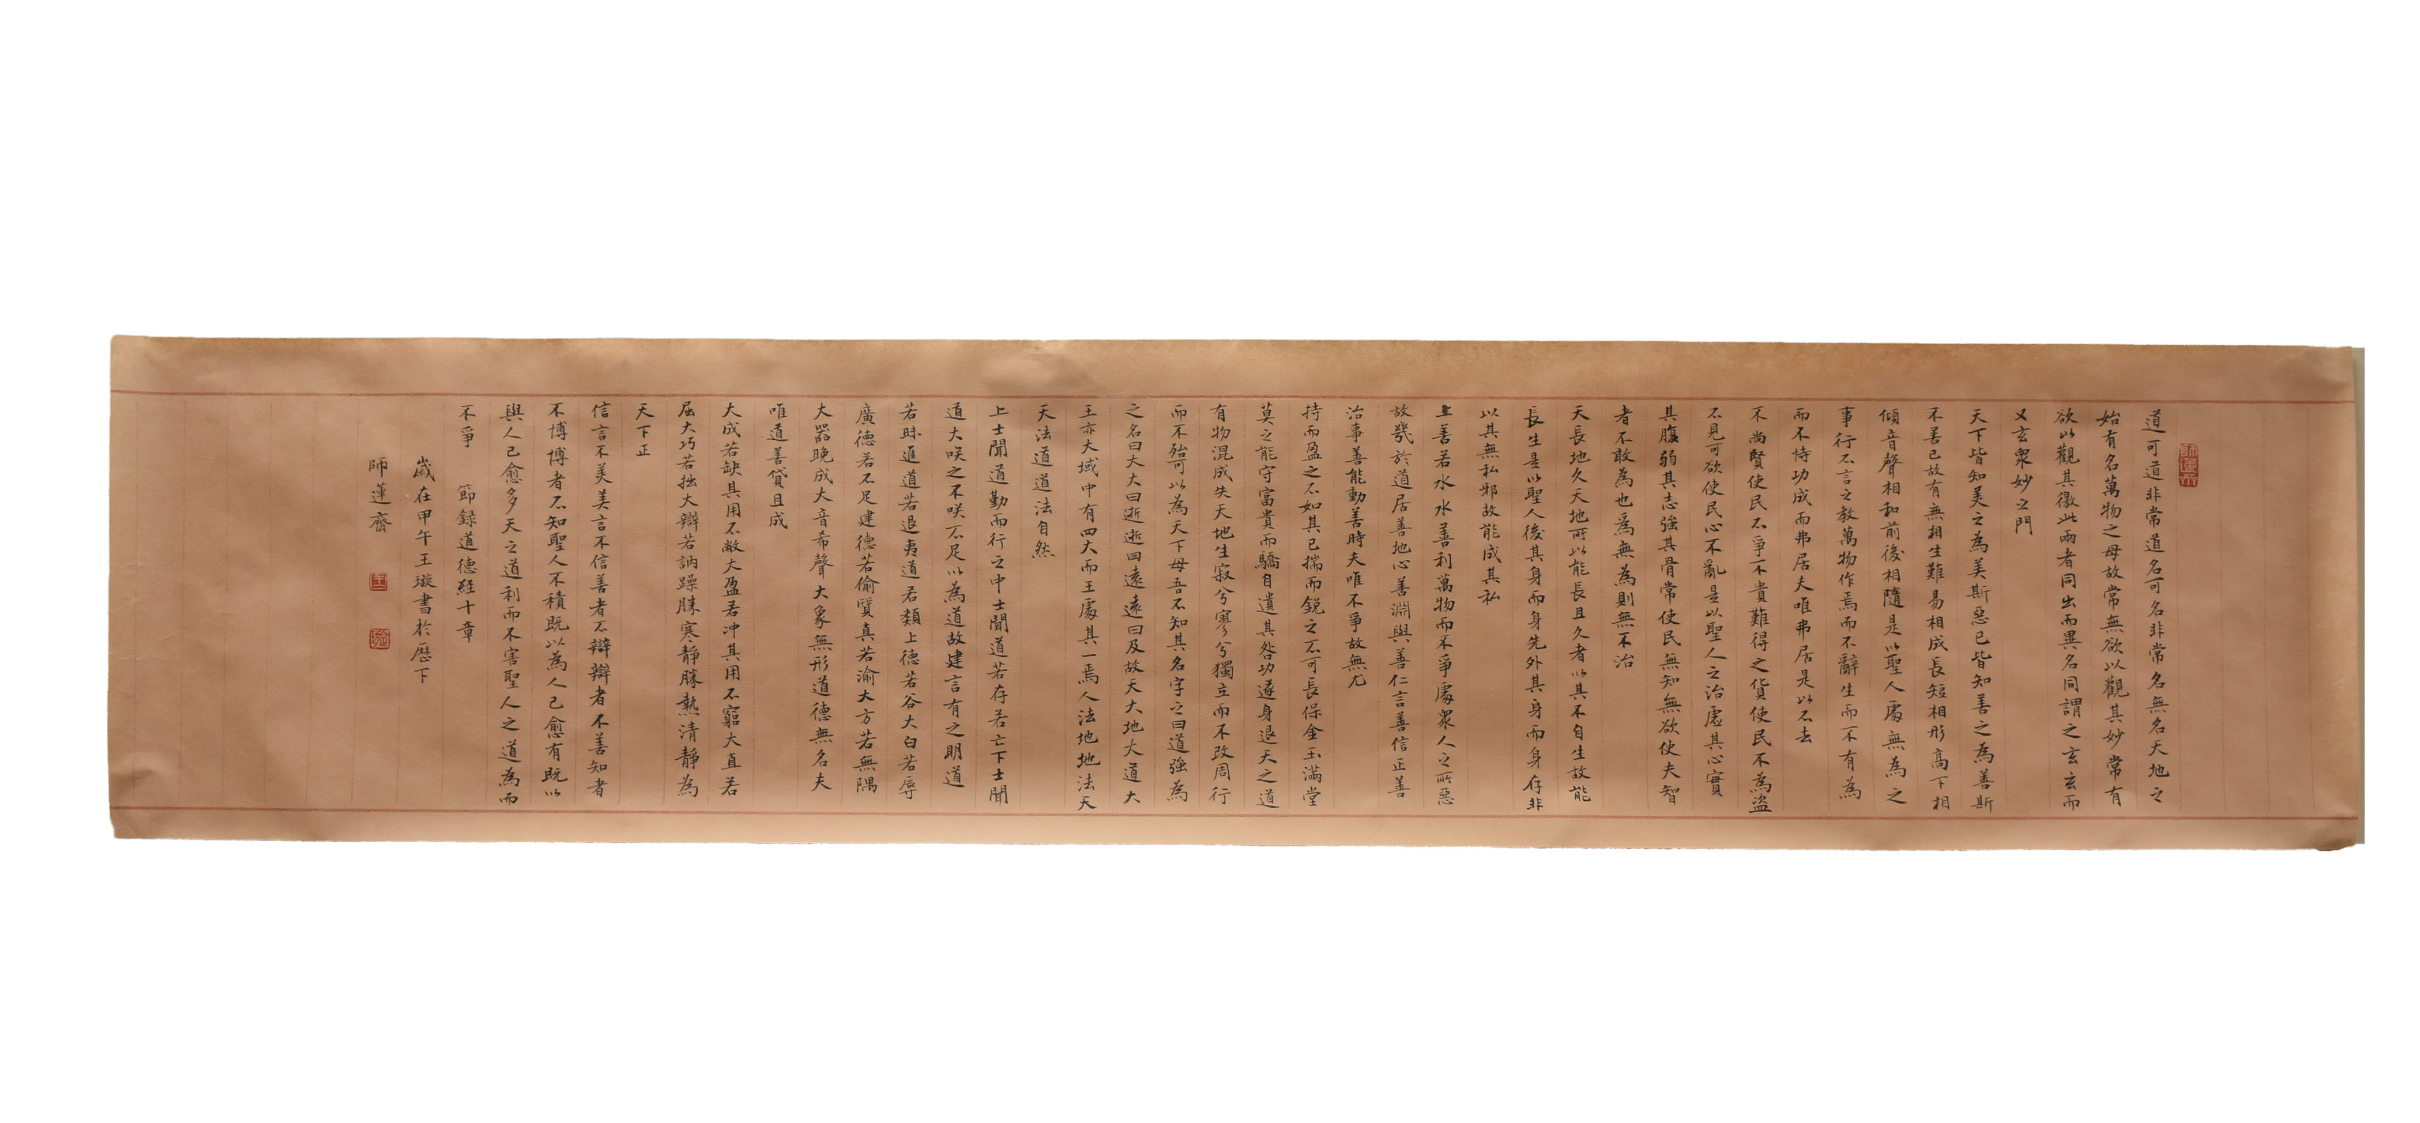 師蓮齋
道可道非常道名可名非常名無名天地之
始有名萬物之母故常無欲以觀其妙常有
欲以觀其徼此兩者同出而異名同謂之玄玄而
又玄衆妙之門
天下皆知美之為美斯惡已皆知善之為善斯
不善已故有無相生難易相成長短相形高下相
傾音聲相和前後相隨是以聖人處無為之
事行不言之教萬物作焉而不辭生而不有為
而不恃功成而弗居夫唯弗居是以不去
不尚賢使民不爭不貴難得之貨使民不為盜
不見可欲使民心不亂是以聖人之治虛其心實
其腹弱其志強其骨常使民無知無欲使夫智
者不敢為也為無為則無不治
天長地久天地所以能長且久者以其不自生故能
長生是以聖人後其身而身先外其身而身存非
以其無私邪故能成其私
上善若水水善利萬物而不爭處衆人之所惡
故幾於道居善地心善淵與善仁言善信正善
治事善能動善時夫唯不爭故無尤
持而盈之不如其已揣而銳之不可長保金玉滿堂
莫之能守富貴而驕自遺其咎功遂身退天之道
有物混成先天地生寂兮寥兮獨立而不改周行
而不殆可以為天下母吾不知其名字之曰道強為
之名曰大大曰逝逝曰遠遠曰反故天大地大道大
王亦大域中有四大而王處其一焉人法地地法天
天法道道法自然
上士聞道勤而行之中士聞道若存若亡下士聞
道大咲之不咲不足以為道故建言有之明道
若昧進道若退夷道若類上德若谷大白若辱
廣德若不足建德若偷質真若渝大方若無隅
大器晚成大音希聲大象無形道德無名夫
唯道善貸且成
大成若缺其用不敝大盈若冲其用不窮大直若
屈大巧若拙大辯若訥躁勝寒靜勝熱清靜為
天下正
信言不美美言不信善者不辯辯者不善知者
不博博者不知聖人不積既以為人己愈有既以
與人己愈多天之道利而不害聖人之道為而
不爭 節録道德經十章
歲在甲午王璇書於歷下
師蓮齋
王
璇